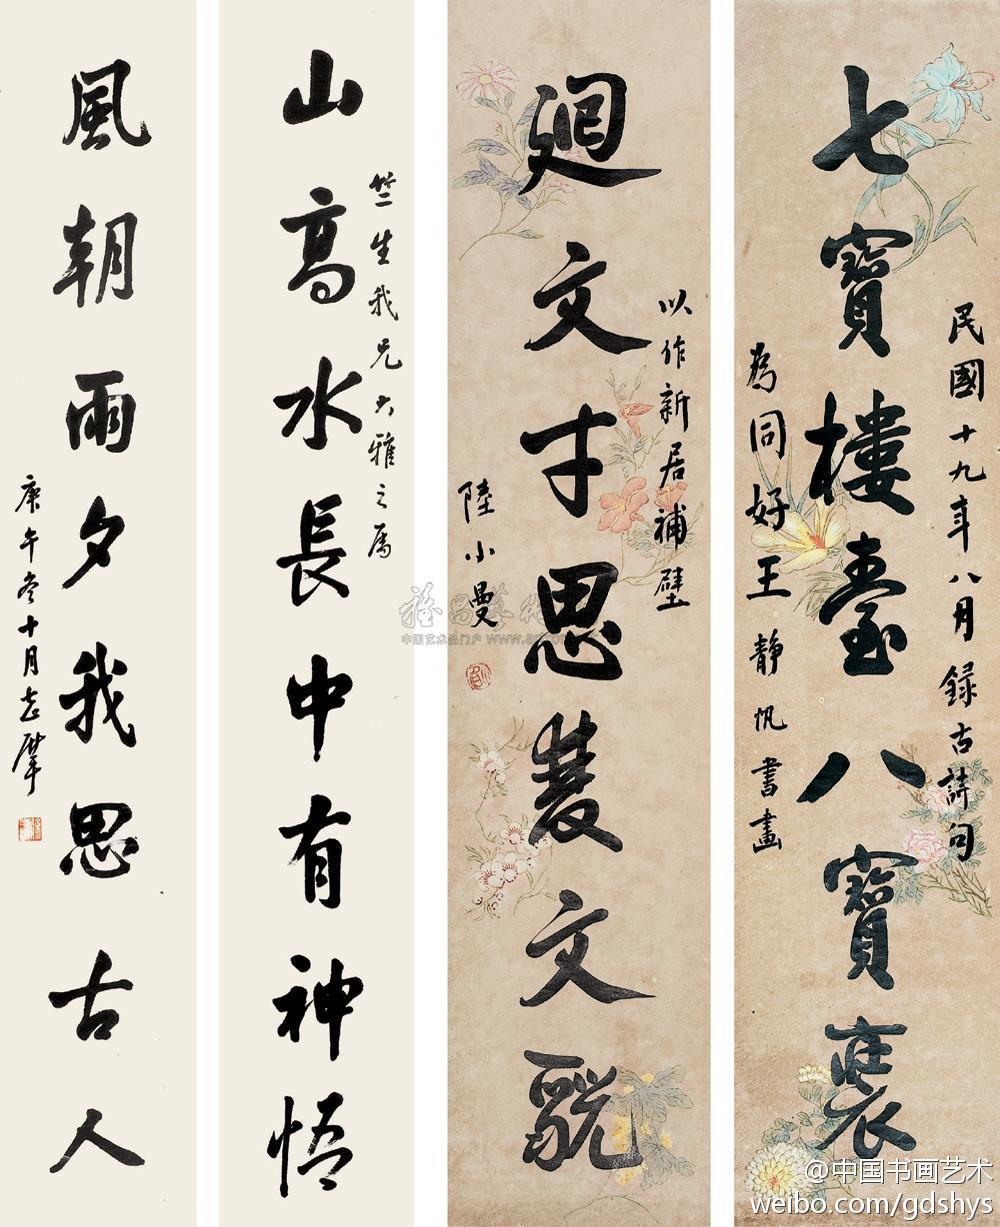 民國十九年八月録古詩句
七寶樓臺八寶
為同好王靜帆書畫
以作新居補壁
廻文才思文
陸小曼
竺生我兄大雅之屬
山高水長中有神悟
風朝雨夕我思古人
庚午冬十月志摩
中国艺术品门户
@中国书画艺术
weibo.com/gdshys